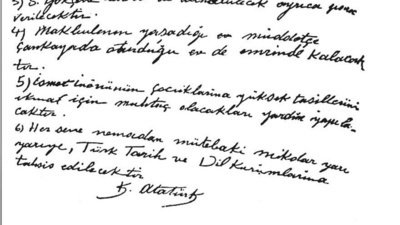 5) S. ayrıca para
verilecektir.
4) Makbulenin yaşadığı ev müddetçe
Çankayada oturduğu ev de emrinde kalacak
tır.
5) İsmet İnönünün çocuklarına yüksek tahsillerini
ikmal için muhtaç olacakları yardım yapıla-
caktır.
6) Her sene nemadan mütebaki miktar yarı
yarıye, Türk Tarih ve Dil Kurumlarına
tahsis edilecektir
K. Atatürk